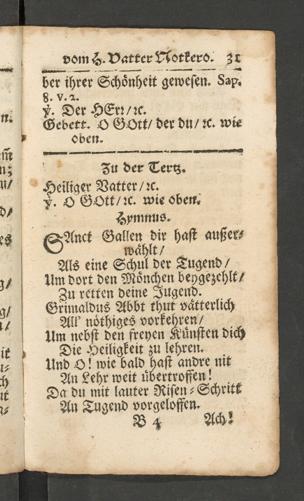 vom H. Vatter Notkero. 31
ber ihrer Schönheit gewesen. Sap.
8. v. 2.
℣. Der HErr/ꝛc.
Gebett. O GOtt/ der du/ ꝛc. wie
oben.
Zu der Tertz.
Heiliger Vatter/ꝛc.
℣. O GOtt/ꝛc. wie oben.
Hymnus.
SAnct Gallen dir hast außer-
wählt/
Als eine Schul der Tugend/
Um dort den Mönchen beygezehlt/
Zu retten deine Jugend.
Grimaldus Abbt thut vätterlich
All' nöthiges vorkehren/
Um nebst den freyen Künsten dich
Die Heiligkeit zu lehren.
Und O! wie bald hast andre nit
An Lehr weit übertroffen!
Da du mit lauter Risen-Schritt
An Tugend vorgeloffen.
B 4 Ach!